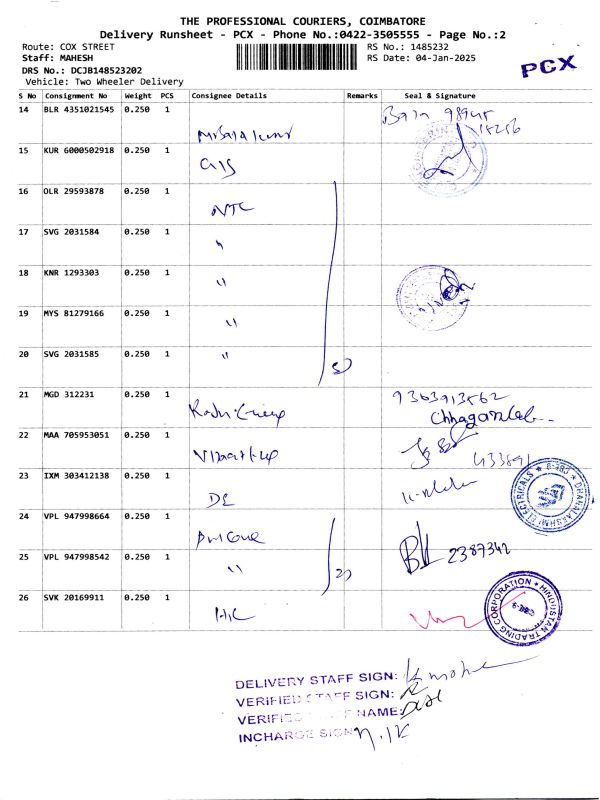 THE PROFESSIONAL COURIERS, COIMBATORE
Delivery Runsheet - PCX - Phone No.:0422-3505555 - Page No.:2
Route: COX STREET RS No.: 1485232
Staff: MAHESH RS Date: 04-Jan-2025
DRS No.: DCJB148523202
Vehicle: Two Wheeler Delivery
PCX
S No Consignment No Weight PCS Consignee Details Remarks Seal & Signature
14 BLR 4351021545 0.250 1
15 KUR 6000502918 0.250 1
16 OLR 29593878 0.250 1 NTC
17 SVG 2031584 0.250 1 "
18 KNR 1293303 0.250 1 "
19 MYS 81279166 0.250 1 "
20 SVG 2031585 0.250 1 "
21 MGD 312231 0.250 1 9363913562
22 MAA 705953051 0.250 1
23 IXM 303412138 0.250 1 DE
DHANALAKSHMI ELECTRICALS
24 VPL 947998664 0.250 1
25 VPL 947998542 0.250 1 " 2387342
26 SVK 20169911 0.250 1
HINDUSTAN TRADING CORPORATION
DELIVERY STAFF SIGN:
VERIFIED STAFF SIGN:
VERIFIED STAFF NAME:
INCHARGE SIGN